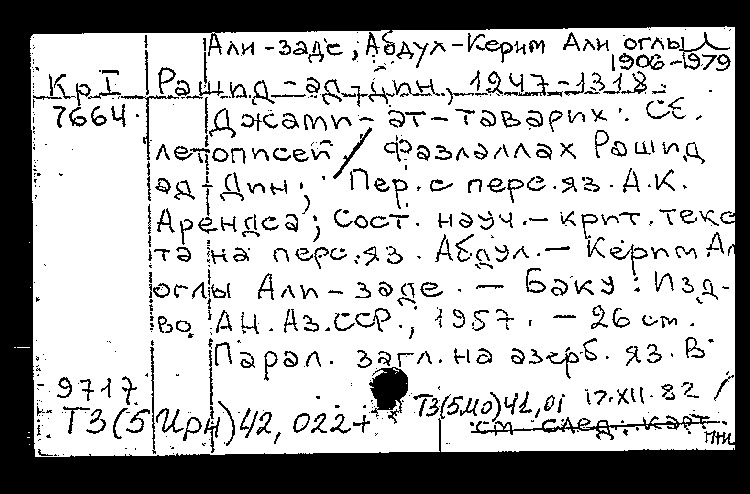 Али-заде, Абдул-Керим Али оглы
1906-1979
КрI Рашид-ад-дин, 1247-1318.
7664. Джами-ат-таварих: Сб.
летописей / Фазлаллах Рашид
ад-Дин; Пер. с перс. яз. А.К.
Арендса; Сост. науч.-крит. текс
та на перс. яз. Абдул.-Керим Ал
оглы Али-заде. — Баку: Изд-
во АН. Аз.ССР., 1957. — 26 см.
Парал. загл. на азерб. яз. В
9717
Т3(5Ирн)42,022+ Т3(5Мо)42,01 17.XII.82
см след. карт.